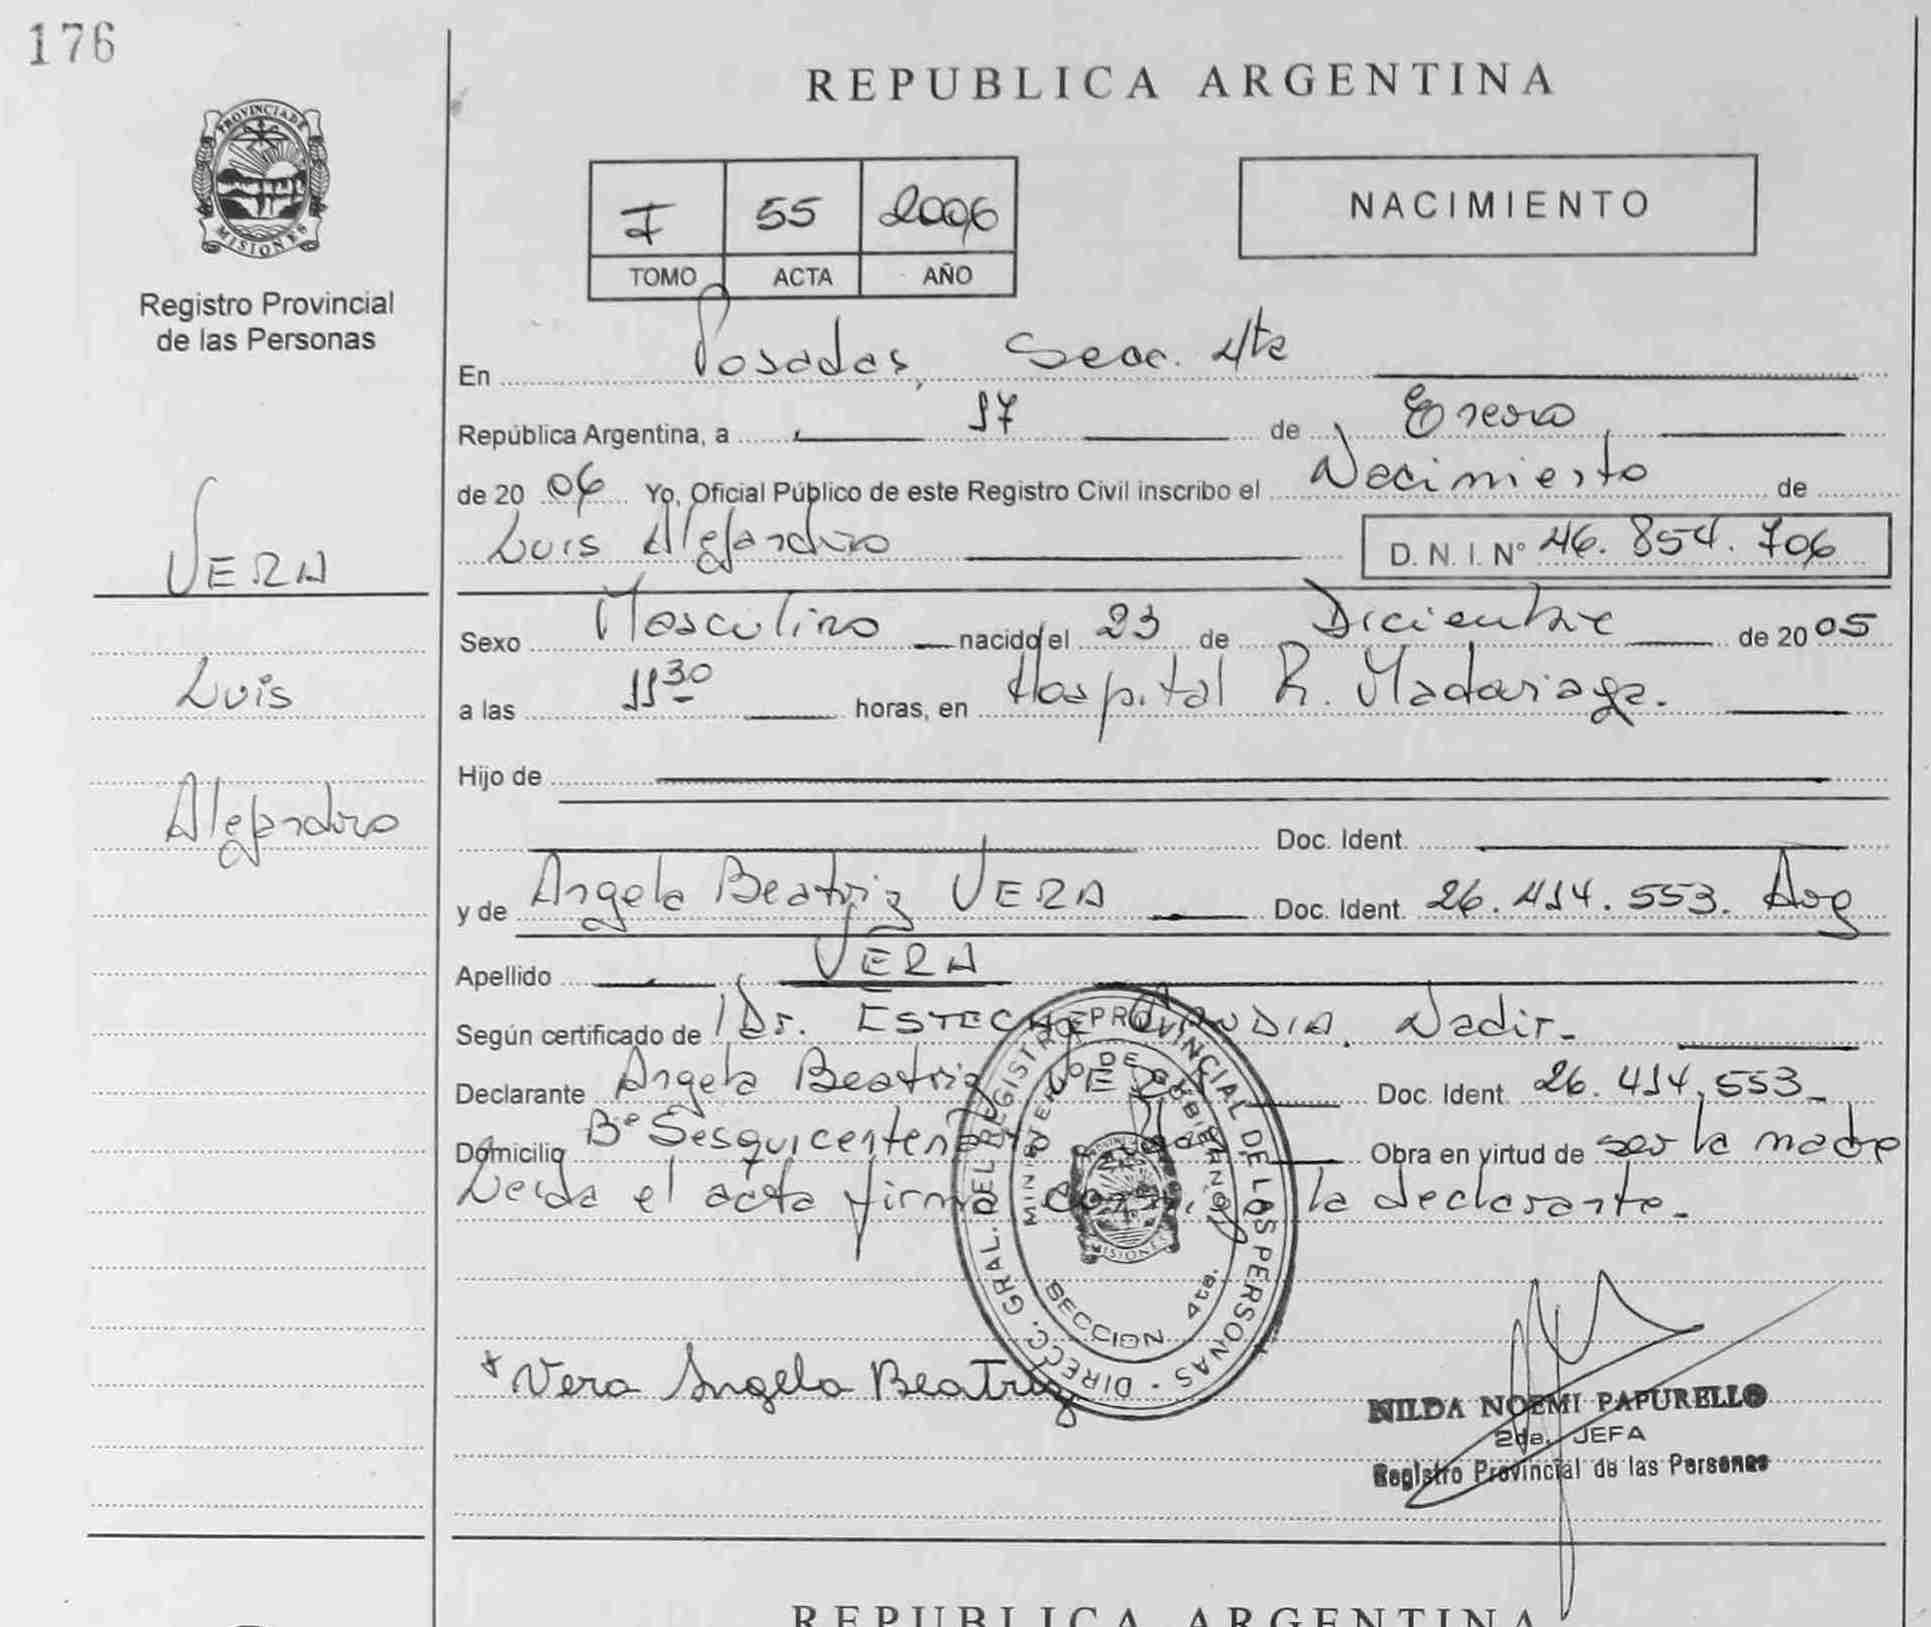 176
REPUBLICA ARGENTINA
PROVINCIA DE MISIONES
Registro Provincial
de las Personas
I 55 2006
TOMO ACTA AÑO
NACIMIENTO
En Posadas, Secc. 4ta
República Argentina, a 17 de Enero
de 20 06 Yo, Oficial Público de este Registro Civil inscribo el Nacimiento de
Luis Alejandro D. N. I. N° 46.854.706
VERA
Luis
Alejandro
Sexo Masculino nacido el 23 de Diciembre de 20 05
a las 11 30 horas, en Hospital R. Madariaga.
Hijo de
Doc. Ident.
y de Angela Beatriz VERA Doc. Ident. 26.414.553. Arg
Apellido VERA
Según certificado de Dr. ESTECHE Nadir-
Declarante Angela Beatriz VERA Doc. Ident. 26.414.553-
Domicilio B° Sesquicentenario Obra en virtud de ser la madre
Leida el acta firma la declarante-
DIRECC. GRAL. DEL REGISTRO PROVINCIAL DE LAS PERSONAS
MINISTERIO DE GOBIERNO
MISIONES
SECCION 4ta.
* Vera Angela Beatriz
NILDA NOEMI PAPURELLO
2da. JEFA
Registro Provincial de las Personas
REPUBLICA ARGENTINA